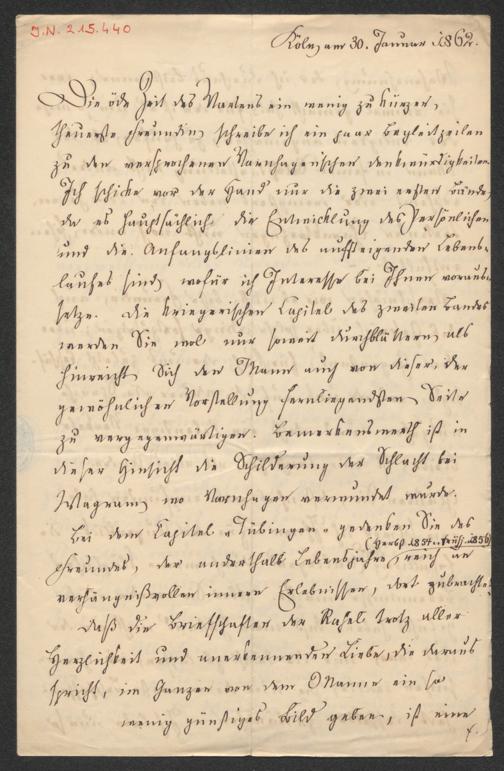 I.N. 215.440
Köln, am 30. Januar 1862.
Die öde Zeit des Wartens ein wenig zu kürzen,
theuerste Freundin, schreibe ich ein paar Begleitzeilen
zu den versprochenen Varnhagenschen Denkwürdigkeiten.
Ich schicke vor der Hand nur die zwei ersten Bände,
da es hauptsächlich die Entwicklung des Persönlichen
und die Anfangslinien des aufsteigenden Lebens-
laufes sind, wofür ich Interesse bei Ihnen voraus-
setze. Die kriegerischen Capitel des zweiten Bandes
werden Sie wol nur soweit durchblättern, als
hinreicht, Sich den Mann auch von dieser, der
gewöhnlichen Vorstellung fernliegendsten Seite
zu vergegenwärtigen. Bemerkenswerth ist in
dieser Hinsicht die Schilderung der Schlacht bei
Wagram, wo Varnhagen verwundet wurde.
Bei dem Capitel „Tübingen“ gedenken Sie des
(Herbst 1854 - Frühj. 1856)
Freundes, der anderthalb Lebensjahre, reich an
verhängnißvollen innern Erlebnissen, dort zubrachte.
Daß die Briefschaften der Rahel trotz aller
Herzlichkeit und anerkennenden Liebe, die daraus
spricht, im Ganzen von dem Manne ein so
wenig günstiges Bild geben, ist eine